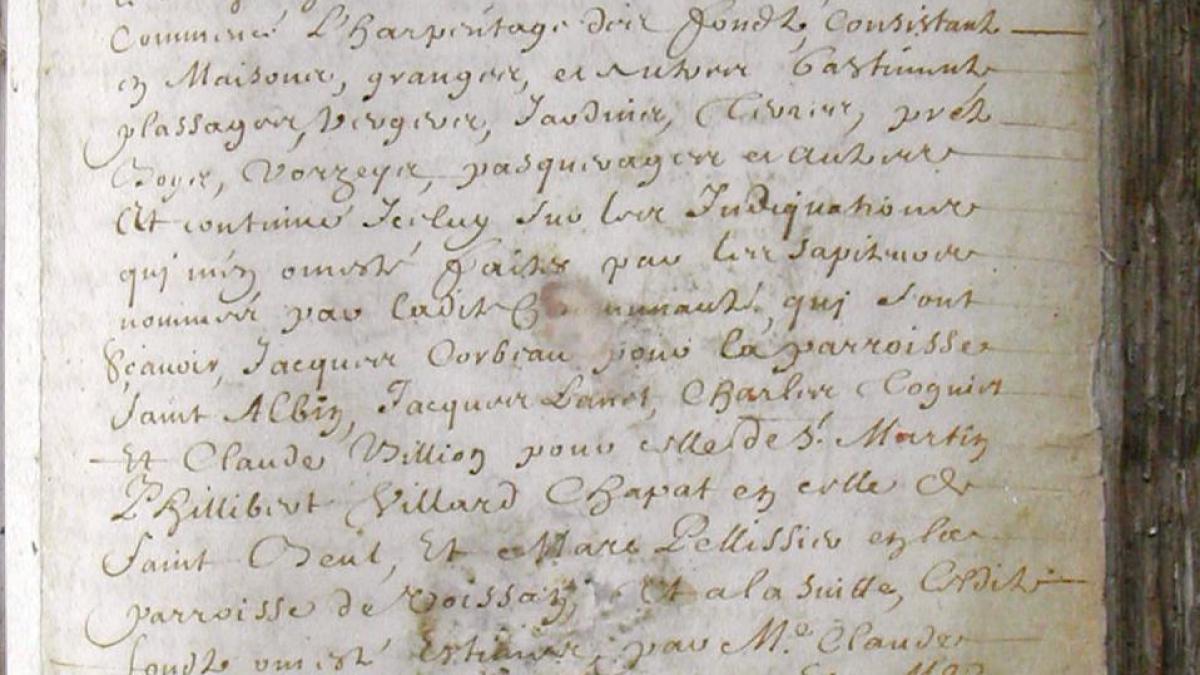 Commencé L'harpentage des fondz, Consistant
en Maisons, granges, et autres bastiments
plassages, Vergers, Jardins, Chevrier, préz
Boys, Vorzeys, pasquerages et autres
Et continué Iceluy sur les Indiquations
qui m'en ont esté faites par les sapiteurs
nommés par ladite Communauté, qui sont
Sçavoir, Jacques Corbeau pour la parroisse
Saint Albin, Jacques Lanet, Charles Coguiet
Et Claude Billion pour celle de St Martin
Phillibert Villard Chapat en celle de
Saint Beul, Et Marc Pellissier en la
parroisse de Voissan, Et a la suitte, Lesdits
fondz ont esté estimés, par Me Claude